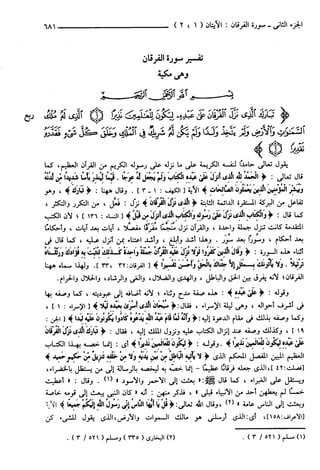 الجزء الثانى ـ سورة الفرقان : الآيتان ( ١ ، ٢ ) ٦٨١
تفسير سورة الفرقان
وهى مكية
﴿ تَبَارَكَ الَّذِي نَزَّلَ الْفُرْقَانَ عَلَىٰ عَبْدِهِ لِيَكُونَ لِلْعَالَمِينَ نَذِيرًا ① الَّذِي لَهُ مُلْكُ
السَّمَاوَاتِ وَالْأَرْضِ وَلَمْ يَتَّخِذْ وَلَدًا وَلَمْ يَكُن لَّهُ شَرِيكٌ فِي الْمُلْكِ وَخَلَقَ كُلَّ شَيْءٍ فَقَدَّرَهُ
يقول تعالى حامدًا لنفسه الكريمة على ما نزله على رسوله الكريم من القرآن العظيم، كما
قال تعالى : ﴿ الْحَمْدُ لِلَّهِ الَّذِي أَنزَلَ عَلَىٰ عَبْدِهِ الْكِتَابَ وَلَمْ يَجْعَل لَّهُ عِوَجًا . قَيِّمًا لِّيُنذِرَ بَأْسًا شَدِيدًا مِّن لَّدُنْهُ
وَيُبَشِّرَ الْمُؤْمِنِينَ الَّذِينَ يَعْمَلُونَ الصَّالِحَاتِ ﴾ الآية [ الكهف : ١ ـ ٣ ] . وقال هاهنا : ﴿ تَبَارَكَ ﴾ ، وهو
تفاعل من البركة المستقرة الدائمة الثابتة ﴿ الَّذِي نَزَّلَ الْفُرْقَانَ ﴾ نزل : فعل ، من التكرر والتكثر ،
كما قال : ﴿ وَالْكِتَابِ الَّذِي نَزَّلَ عَلَىٰ رَسُولِهِ وَالْكِتَابِ الَّذِي أَنزَلَ مِن قَبْلُ ﴾ [ النساء : ١٣٦ ] ؛ لأن الكتب
المتقدمة كانت تنزل جملة واحدة ، والقرآن نزل منجما مفرقًا مفصلًا ، آيات بعد آيات ، وأحكامًا
بعد أحكام ، وسورًا بعد سور . وهذا أشد وأبلغ ، وأشد اعتناء بمن أنزل عليه ، كما قال فى
أثناء هذه السورة : ﴿ وَقَالَ الَّذِينَ كَفَرُوا لَوْلَا نُزِّلَ عَلَيْهِ الْقُرْآنُ جُمْلَةً وَاحِدَةً كَذَٰلِكَ لِنُثَبِّتَ بِهِ فُؤَادَكَ وَرَتَّلْنَاهُ
تَرْتِيلًا . وَلَا يَأْتُونَكَ بِمَثَلٍ إِلَّا جِئْنَاكَ بِالْحَقِّ وَأَحْسَنَ تَفْسِيرًا ﴾ [ الفرقان : ٣٢ ، ٣٣ ] . ولهذا سماه هاهنا
الفرقان ؛ لأنه يفرق بين الحق والباطل ، والهدى والضلال ، والغى والرشاد ، والحلال والحرام .
وقوله : ﴿ عَلَىٰ عَبْدِهِ ﴾ : هذه صفة مدح وثناء ؛ لأنه أضافه إلى عبوديته ، كما وصفه بها
فى أشرف أحواله ، وهى ليلة الإسراء ، فقال : ﴿ سُبْحَانَ الَّذِي أَسْرَىٰ بِعَبْدِهِ لَيْلًا ﴾ [ الإسراء : ١ ] ،
وكما وصفه بذلك فى مقام الدعوة إليه : ﴿ وَأَنَّهُ لَمَّا قَامَ عَبْدُ اللَّهِ يَدْعُوهُ كَادُوا يَكُونُونَ عَلَيْهِ لِبَدًا ﴾ [ الجن :
١٩ ] ، وكذلك وصفه عند إنزال الكتاب عليه ونزول الملك إليه ، فقال : ﴿ تَبَارَكَ الَّذِي نَزَّلَ الْفُرْقَانَ
عَلَىٰ عَبْدِهِ لِيَكُونَ لِلْعَالَمِينَ نَذِيرًا ﴾ . وقوله : ﴿ لِيَكُونَ لِلْعَالَمِينَ نَذِيرًا ﴾ أى : إنما خصه بهذا الكتاب
العظيم المبين المفصل المحكم الذى ﴿ لَا يَأْتِيهِ الْبَاطِلُ مِن بَيْنِ يَدَيْهِ وَلَا مِنْ خَلْفِهِ تَنزِيلٌ مِّنْ حَكِيمٍ حَمِيدٍ ﴾
[ فصلت : ٤٢ ] ، الذى جعله فرقانًا عظيمًا ـ إنما خصه به ليخصه بالرسالة إلى من يستظل بالخضراء ،
ويستقل على الغبراء ، كما قال ﷺ : « بعثت إلى الأحمر والأسود » (١) . وقال : « أعطيت
خمسًا لم يعطهن أحد من الأنبياء قبلى » ، فذكر منهن : أنه « كان النبى يبعث إلى قومه خاصة
وبعثت إلى الناس عامة » (٢) ، وقال الله تعالى : ﴿ قُلْ يَا أَيُّهَا النَّاسُ إِنِّي رَسُولُ اللَّهِ إِلَيْكُمْ جَمِيعًا ﴾ الآية
[ الأعراف : ١٥٨ ] ، أى : الذى أرسلنى هو مالك السموات والأرض ، الذى يقول للشىء كن
(١) مسلم ( ٥٢١ / ٣ ) . (٢) البخارى ( ٣٣٥ ) ومسلم ( ٥٢١ / ٣ ) .